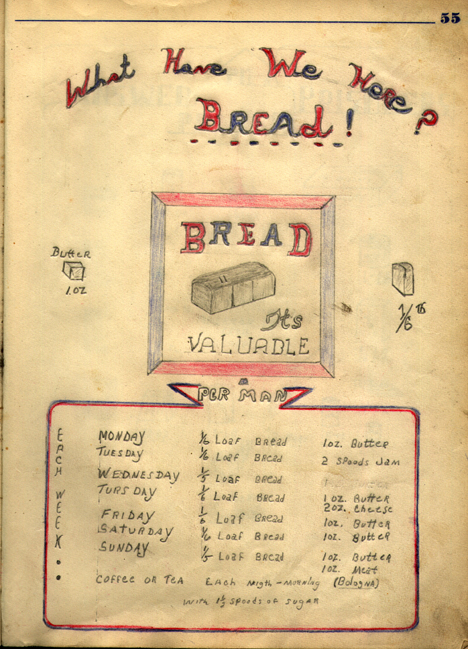 55
What Have We Here?
BREAd!
BREAD
Its
VALUABLE
Butter
1oz
1/6 th
PER MAN
EACH WEEK
MONDAY 1/6 Loaf Bread 1oz. Butter
TUESDAY 1/6 Loaf Bread 2 Spoods Jam
WEDNESDAY 1/5 Loaf Bread
TURSDAY Loaf Bread 1oz. Butter
2oz. Cheese
FRIDAY 1/6 Loaf Bread 1oz. Butter
SATURDAY 1/6 Loaf Bread 1oz. Butter
SUNDAY 1/5 Loaf Bread 1oz. Butter
1oz. Meat
COFFEE OR TEA EACH Nigth-Morning (Bologna)
With 1 1/2 Spoods of Sugar